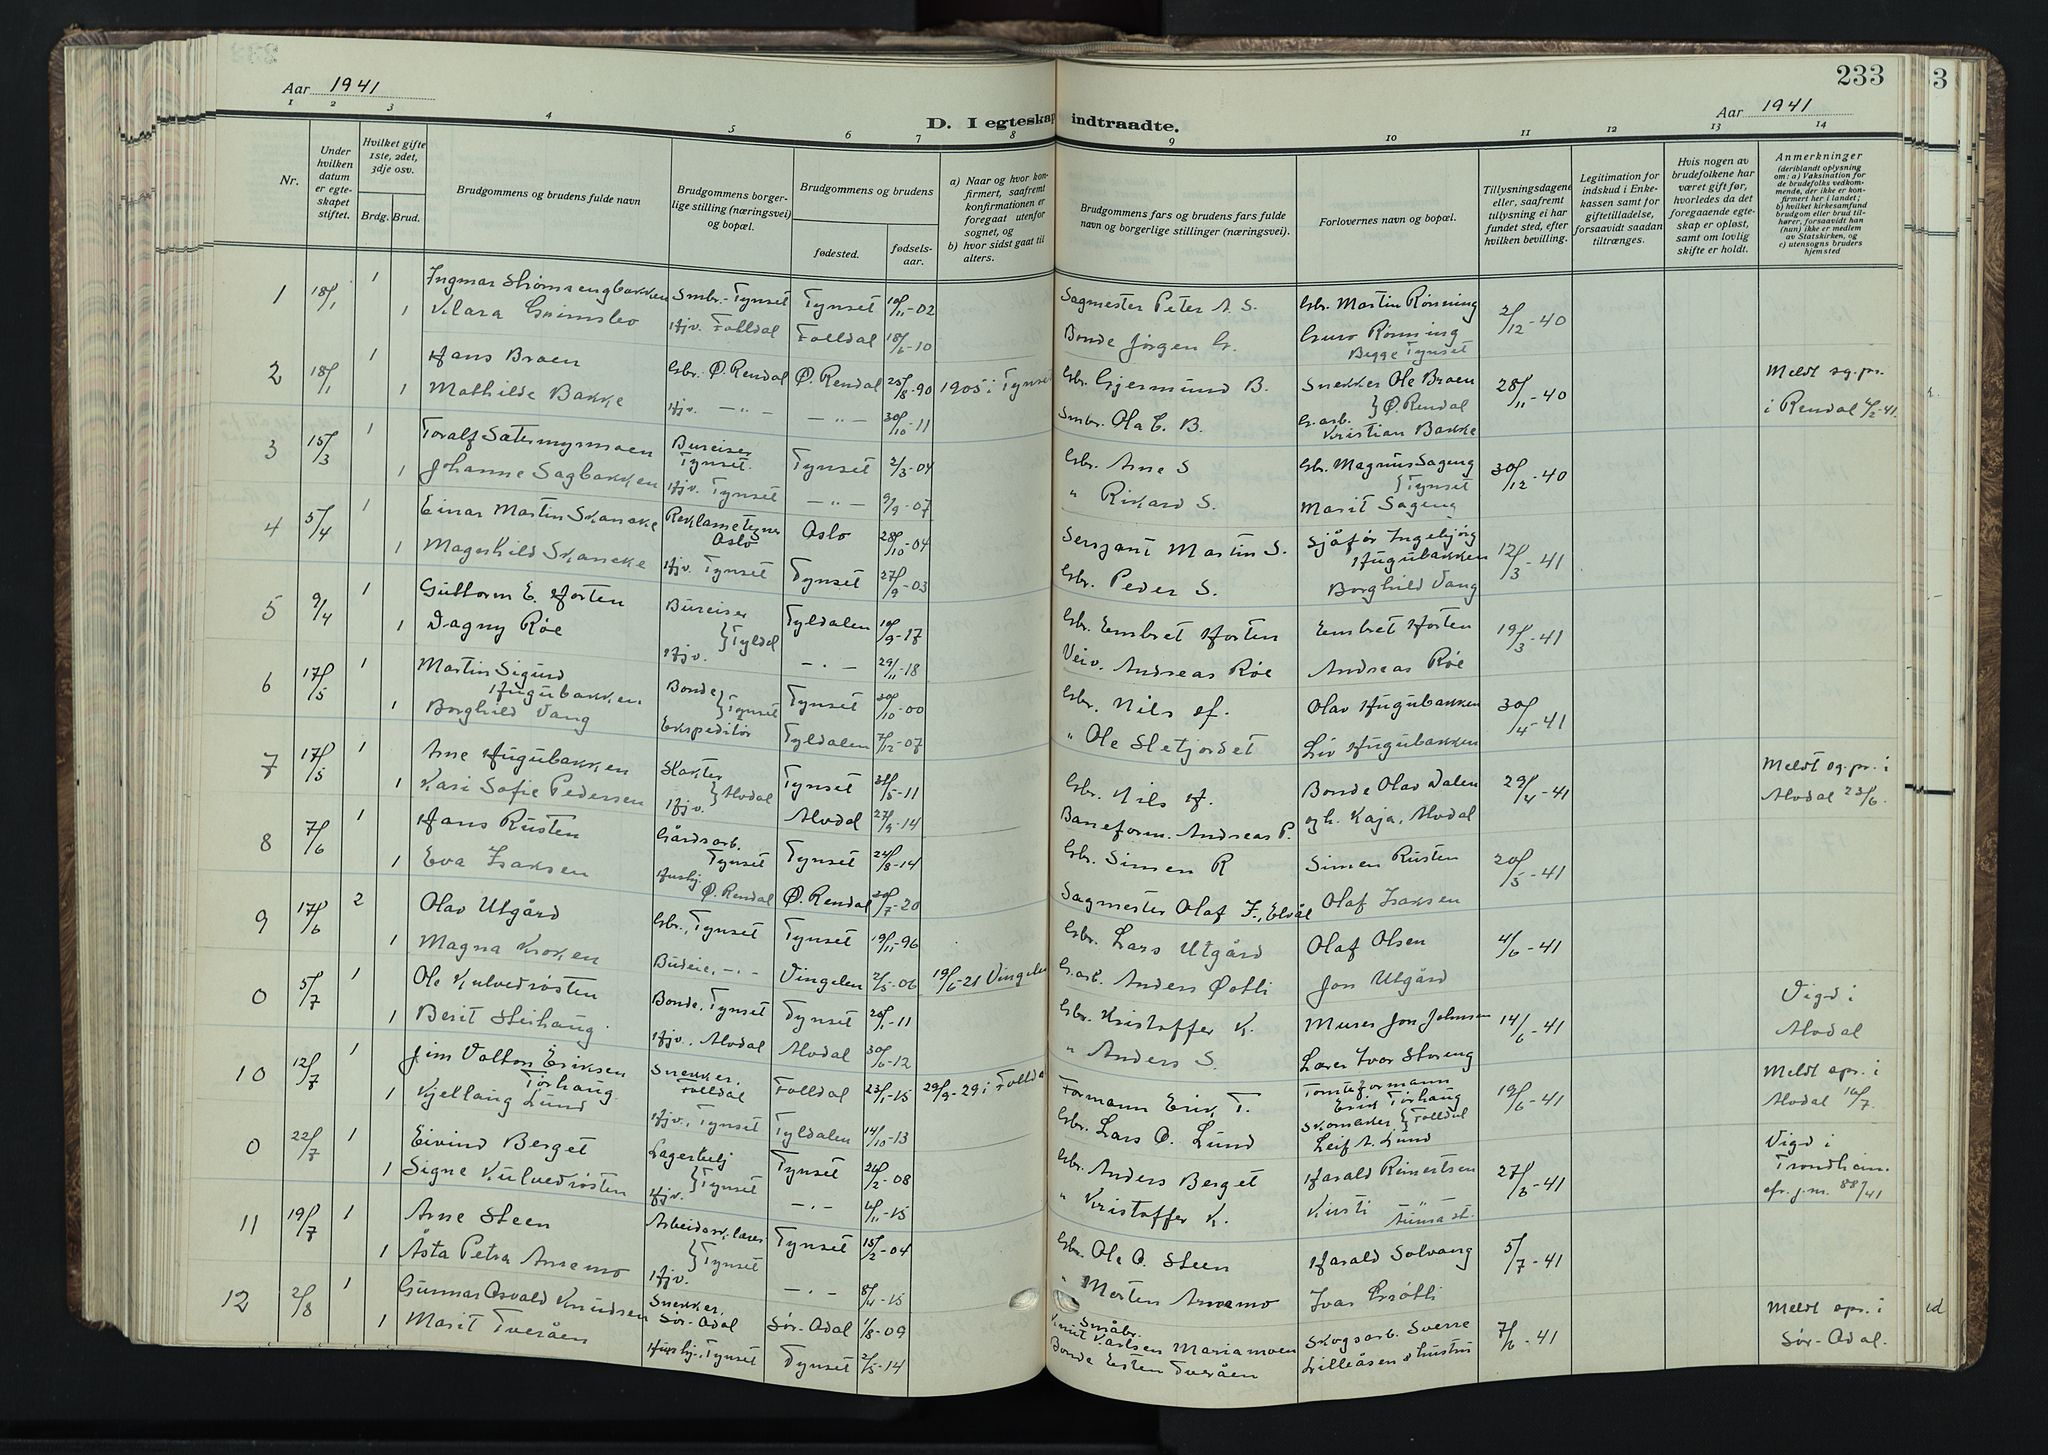 Aar 1941
233
Aar 1941
D. I egteskap indtraadte.
1 2 3 4 5 6 7 8 9 10 11 12 13 14
Nr.
Under hvilken datum er egteskapet stiftet.
Hvilket gifte 1ste, 2det, 3dje osv.
Brdg. Brud.
Brudgommens og brudens fulde navn
Brudgommens borgerlige stilling (næringsvei) og bopæl.
Brudgommens og brudens
fødested.
fødselsaar.
a) Naar og hvor konfirmert, saafremt konfirmationen er foregaat utenfor sognet, og
b) hvor sidst gaat til alters.
Brudgommens fars og brudens fars fulde navn og borgerlige stillinger (næringsvei).
Forlovernes navn og bopæl.
Tillysningsdagene eller, saafremt tillysning ei har fundet sted, efter hvilken bevilling.
Legitimation for indskud i Enkekassen samt for giftetilladelse, forsaavidt saadan tiltrænges.
Hvis nogen av brudefolkene har været gift før, hvorledes da det foregaaende egteskap er opløst, samt om lovlig skifte er holdt.
Anmerkninger (deriblandt oplysning om: a) Vaksination for de brudefolks vedkommende, der ikke er konfirmert her i landet; b) hvilket kirkesamfund brudgom eller brud tilhører, forsaavidt han (hun) ikke er medlem av Statskirken, og c) utensogns bruders hjemsted
1 18/1 1 Ingmar Strømsengbakken Smbr. Tynset Tynset 10/11-02 Sagmester Peter A. S. Gbr. Martin Rønning 2/12-40
1 Klara Grimsbo Hjv. Folldal Folldal 18/6-10 Bonde Jørgen G. Guro Rønning
Begge Tynset
2 18/1 1 Hans Braen Gbr. Ø. Rendal Ø. Rendal 25/8-90 1905 i Tynset Gbr. Gjermund B. Snekker Ole Braen 28/11-40 Meldt sg.pr.
1 Mathilde Bakke Hjv. -"- -"- 30/10-11 Smbr. Ola E. B. G.arb. } Ø. Rendal i Rendal 4/2-41.
Kristian Bakke
3 15/3 1 Toralf Sætermyrmoen Bureiser Tynset. Tynset 2/3-04 Gbr. Arne S Gbr. Magnus Sageng 30/12-40
1 Johanne Sagbakken Hjv. Tynset -"- 9/9-07 " Rikard S. } Tynset
Marit Sageng
4 5/4 1 Einar Martin Skancke Reklametegner Oslo Oslo 28/10-04 Sersjant Martin S. Sjåfør Ingebjørg Hugubakken 12/3-41
1 Magnhild Skancke Hjv. Tynset Tynset 27/9-03 Gbr. Peder S. Borghild Vang
5 9/4 1 Guttorm E. Horten Bureiser Tyldalen 10/9-17 Gbr. Embret Horten Embret Horten 19/3-41
1 Dagny Røe Hjv. } Tyldal -"- 29/11-18 Veiv. Andreas Røe Andreas Røe
6 17/5 1 Martin Sigurd Hugubakken Bonde Tynset 30/10-00 Gbr. Nils H. Olav Hugubakken 30/4-41
1 Borghild Vang Ekspeditør } Tynset Tyldalen 7/12-07 " Ole Sletjordet Liv Hugubakken
7 17/5 1 Arne Hugubakken Slakter Tynset 31/5-11 Gbr. Nils H. Bonde Olav Dalen 29/4-41 Meldt sg.pr. i
1 Kari Sofie Pedersen Hjv. } Alvdal Alvdal 27/9-14 Baneform. Andreas P. og h. Kaja, Alvdal Alvdal 23/6.
8 7/6 1 Hans Rusten Gårdsarb. Tynset Tynset 24/8-14 Gbr. Simen R Simen Rusten 20/5-41
1 Eva Isaksen Hushj. Ø. Rendal Ø. Rendal 30/7-20 Sagmester Olaf I., Elvål Olaf Isaksen
9 17/6 2 Olav Utgård Gbr., Tynset Tynset 19/11-96 Gbr. Lars Utgård Olaf Olsen 4/6-41
1 Magna Kroken Budeie, -"- Vingelen 2/5-06 19/6-21 Vingelen G.arb. Anders Østli Jon Utgård
0 5/7 1 Ole Kulvedrøsten Bonde, Tynset Tynset 25/1-11 Gbr. Kristoffer K. Murer Jon Johnsen 14/6-41 Vigd i
1 Berit Steihaug Hjv., Alvdal Alvdal 30/6-12 " Anders S. Lærer Ivar Storeng Alvdal
10 12/7 1 Jim Valton Eriksen Tørhaug Snekker. Folldal Folldal 23/1-15 29/9-29 i Folldal Formann Erik T. Tomteformann Erik Tørhaug 19/6-41 Meldt spr. i
1 Kjellaug Lund Hjv., Tynset Tyldalen 14/10-13 Gbr. Lars O. Lund Skomaker } Folldal Leif A. Lund Alvdal 16/7.
0 22/7 1 Eivind Berget Lagerhelj Tynset 26/2-08 Gbr. Anders Berget Harald Reinertsen 27/3-41 Vigd i
1 Signe Kulvedrøsten Hjv. } Tynset -"- 4/11-15 " Kristoffer K. Kirsti Trondheim.
cfr. j.nr. 887/41
11 19/7 1 Arne Steen Tynset 15/2-04 Gbr. Ole O. Steen Harald Solvang 5/7-41
1 Åsta Petra Arnemo Hjv. } Tynset -"- 8/4-15 " Morten Arnemo
12 2/8 1 Gunnar Osvald Knudsen Snekker. Sør-Odal Sør-Odal 1/8-09 Småbr. Knut Karlsen Mariamoen Skogsarb. Sverre 7/6-41 Meldt spr. i
1 Marit Tveråen Hushj., Tynset Tynset 2/5-14 Bonde Esten Tveråen Lilleåsen & hustru Sør-Odal.